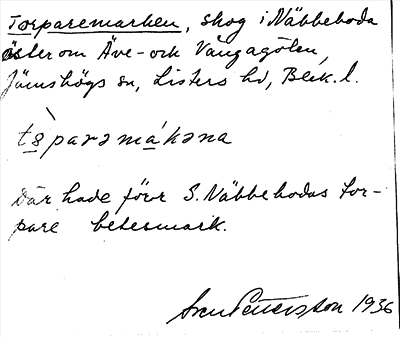 Torparemarken, skog i Näbbeboda
öster om Äve- och Vångagölen,
Jämshögs sn, Listers hd, Blek. l.
tò̱parəma̱kəna
Där hade förr S. Näbbebodas tor-
pare betesmark.
Sven Pettersson 1936